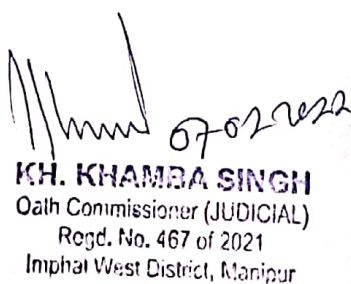 07-02-2022
KH. KHAMBA SINGH
Oath Commissioner (JUDICIAL)
Regd. No. 467 of 2021
Imphal West District, Manipur